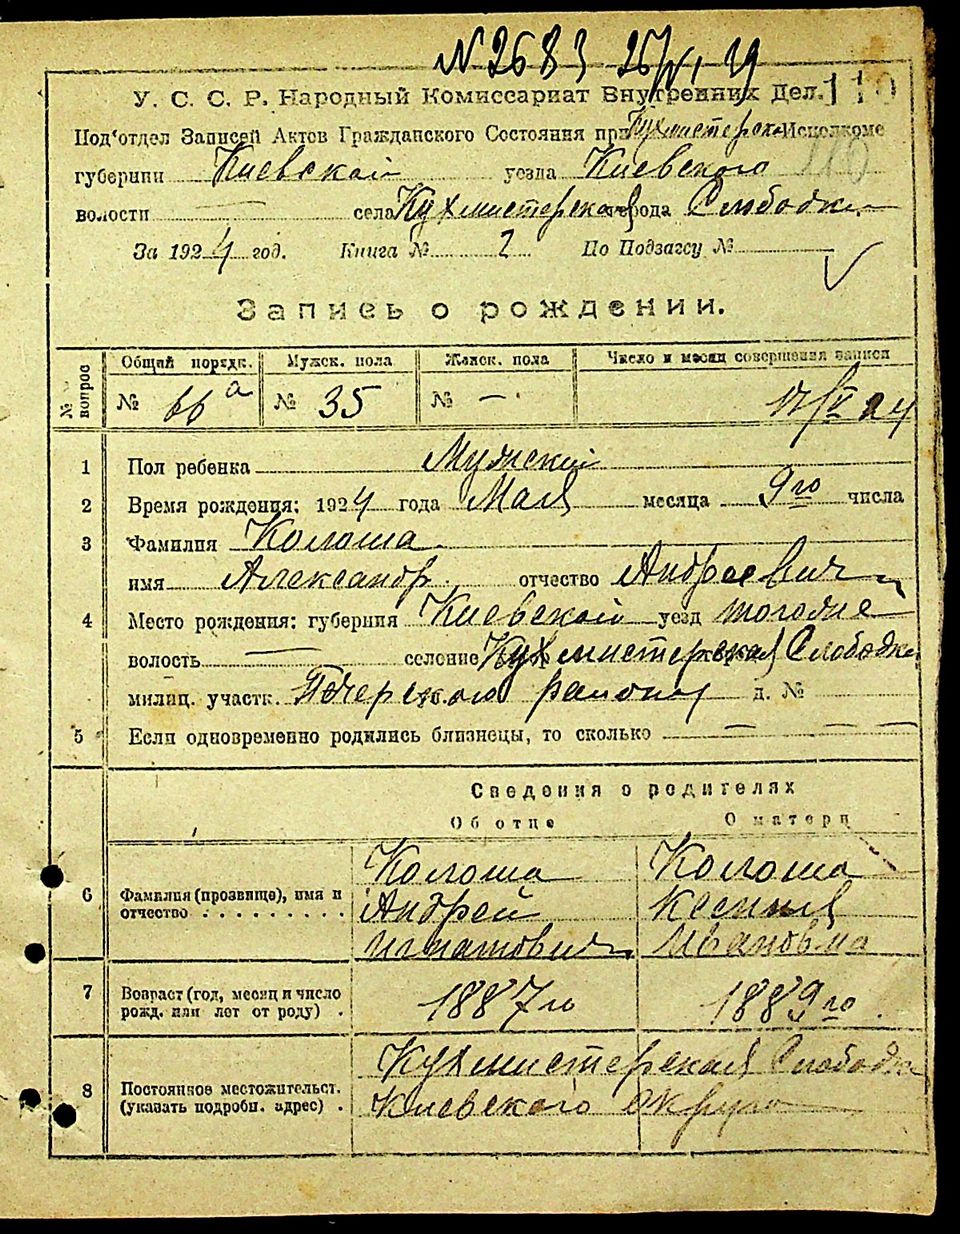 N 2683
У. С. С. Р. Народный Комиссариат Внутренних Дел. 110
Под'отдел Записей Актов Гражданского Состояния при Кухмистерск. Исполкоме
губернии Киевской уезда Киевского
волости — села Кухмистерская города Слободка
За 1924 год. Книга № 2 По Подзагсу №
Запись о рождении.
№ вопрос
Общий порядк. Мужск. пола Женск. пола Число и месяц совершения записи
№ 66 а № 35 № — 17/V 24
1 Пол ребенка Мужской
2 Время рождения: 1924 года Мая месяца 9го числа
3 Фамилия Колоша
имя Александр отчество Андреевич
4 Место рождения: губерния Киевской уезд тогоже
волость — селение Кухмистерская Слободка
милиц. участк. Печерского района д. №
5 Если одновременно родились близнецы, то сколько — — —
Сведения о родителях
Об отце О матери
6 Фамилия (прозвище), имя и отчество
Колоша Колоша
Андрей Ксения
Игнатович Ивановна
7 Возраст (год, месяц и число рожд. или лет от роду) .
1887 го 1889 го
8 Постоянное местожительст. (указать подробн. адрес) .
Кухмистерская Слободка
Киевского Округа